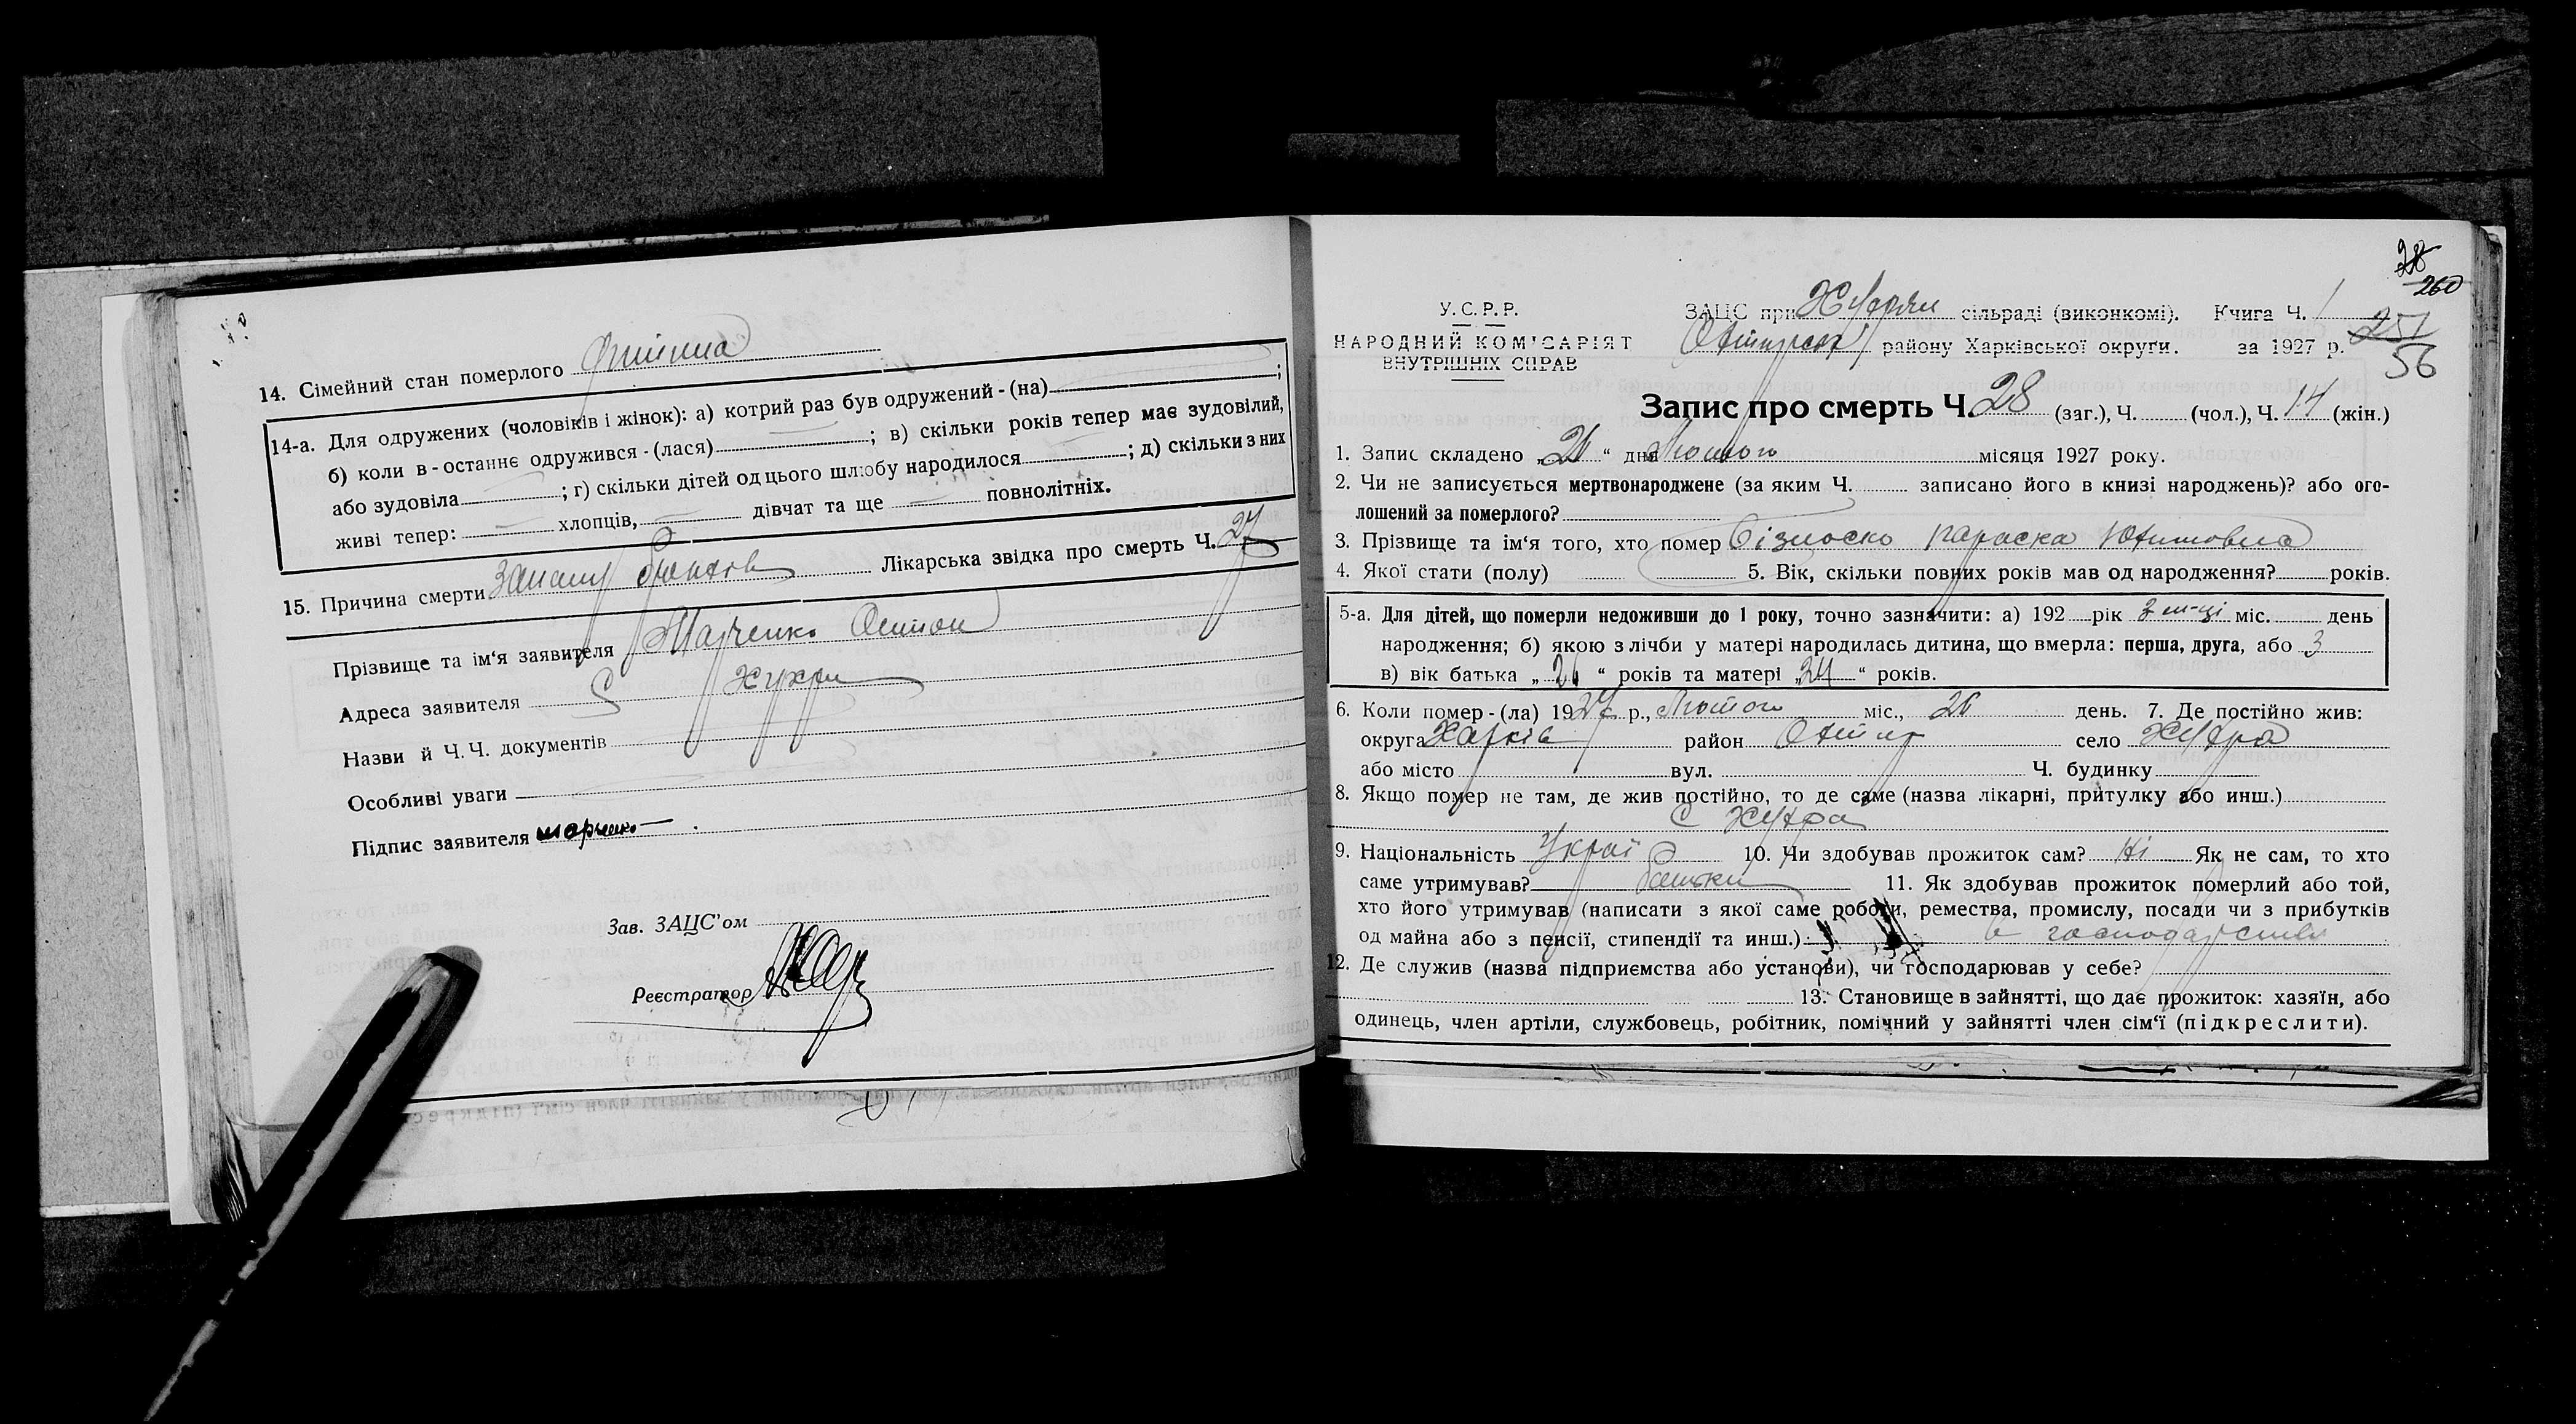 14. Сімейний стан померлого дитина
14-а. Для одружених (чоловіків і жінок): а) котрий раз був одружений - (на) ;
б) коли в-останнє одружився - (лася) ; в) скільки років тепер має зудовілий,
або зудовіла ; г) скільки дітей од цього шлюбу народилося ; д) скільки з них
живі тепер: хлопців, дівчат та ще повнолітніх.
15. Причина смерти Лікарська звідка про смерть Ч. 27
Прізвище та ім'я заявителя Марченко
Адреса заявителя С Хухри
Назви й Ч. Ч. документів
Особливі уваги
Підпис заявителя Марченко
Зав. ЗАЦС'ом
Реєстратор
28
260
У. С. Р. Р.
НАРОДНИЙ КОМІСАРІЯТ
ВНУТРІШНІХ СПРАВ
ЗАЦС при сільраді (виконкомі). Книга Ч. 1
району Харківської округи. за 1927 р. 257
56
Запис про смерть Ч. 28 (заг.), Ч. (чол.), Ч. 14 (жін.)
1. Запис складено „26“ дня Лютого місяця 1927 року.
2. Чи не записується мертвонароджене (за яким Ч. записано його в книзі народжень)? або ого-
лошений за померлого?
3. Прізвище та ім'я того, хто помер Бізноско Параска Юхимовна
4. Якої стати (полу) 5. Вік, скільки повних років мав од народження? років.
5-а. Для дітей, що померли недоживши до 1 року, точно зазначити: а) 192 рік міс. день
народження; б) якою з лічби у матері народилась дитина, що вмерла: перша, друга, або 3
в) вік батька „26“ років та матері „24“ років.
6. Коли помер - (ла) 1927 р., Лютого міс., 26 день. 7. Де постійно жив:
округа Харків район Охтир село Хухра
або місто вул. Ч. будинку
8. Якщо помер не там, де жив постійно, то де саме (назва лікарні, притулку або инш.)
С Хухра
9. Національність Украї 10. Чи здобував прожиток сам? Ні Як не сам, то хто
саме утримував? батьки 11. Як здобував прожиток померлий або той,
хто його утримував (написати з якої саме роботи, ремества, промислу, посади чи з прибутків
од майна або з пенсії, стипендії та инш.) в господарстві
12. Де служив (назва підприємства або установи), чи господарював у себе?
13. Становище в зайнятті, що дає прожиток: хазяїн, або
одинець, член артіли, службовець, робітник, помічний у зайнятті член сім'ї (підкреслити).